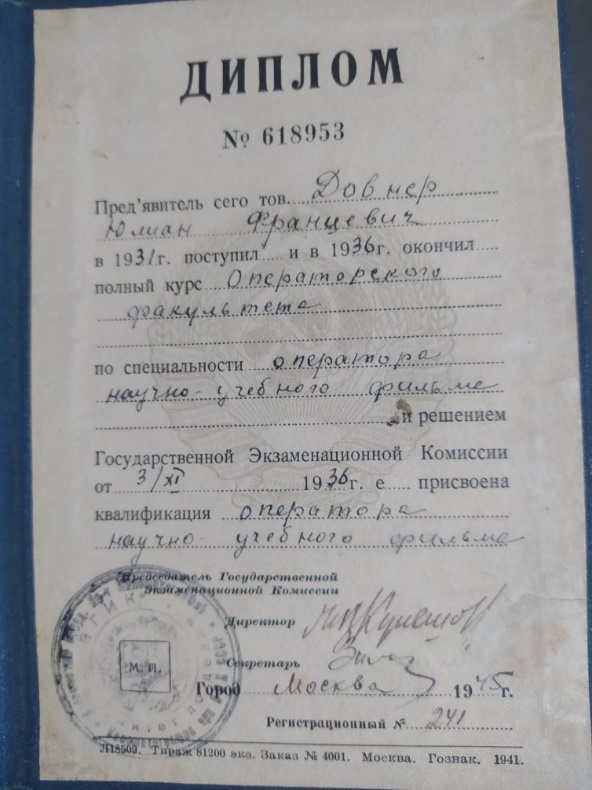 ДИПЛОМ
№ 618953
Пред'явитель сего тов. Довнер
Юлиан Францевич
в 1931г. поступил и в 1936г. окончил
полный курс Операторского
факультета
по специальности оператора
научно-учебного фильма
и решением
Государственной Экзаменационной Комиссии
от 3/XI 1936г. е присвоена
квалификация оператора
научно-учебного фильма
Председатель Государственной
Экзаменационной Комиссии
Директор
Секретарь
М. П.
Город Москва 1945г.
Регистрационный № 241
Л18509. Тираж 81200 экз. Заказ № 4001. Москва. Гознак. 1941.